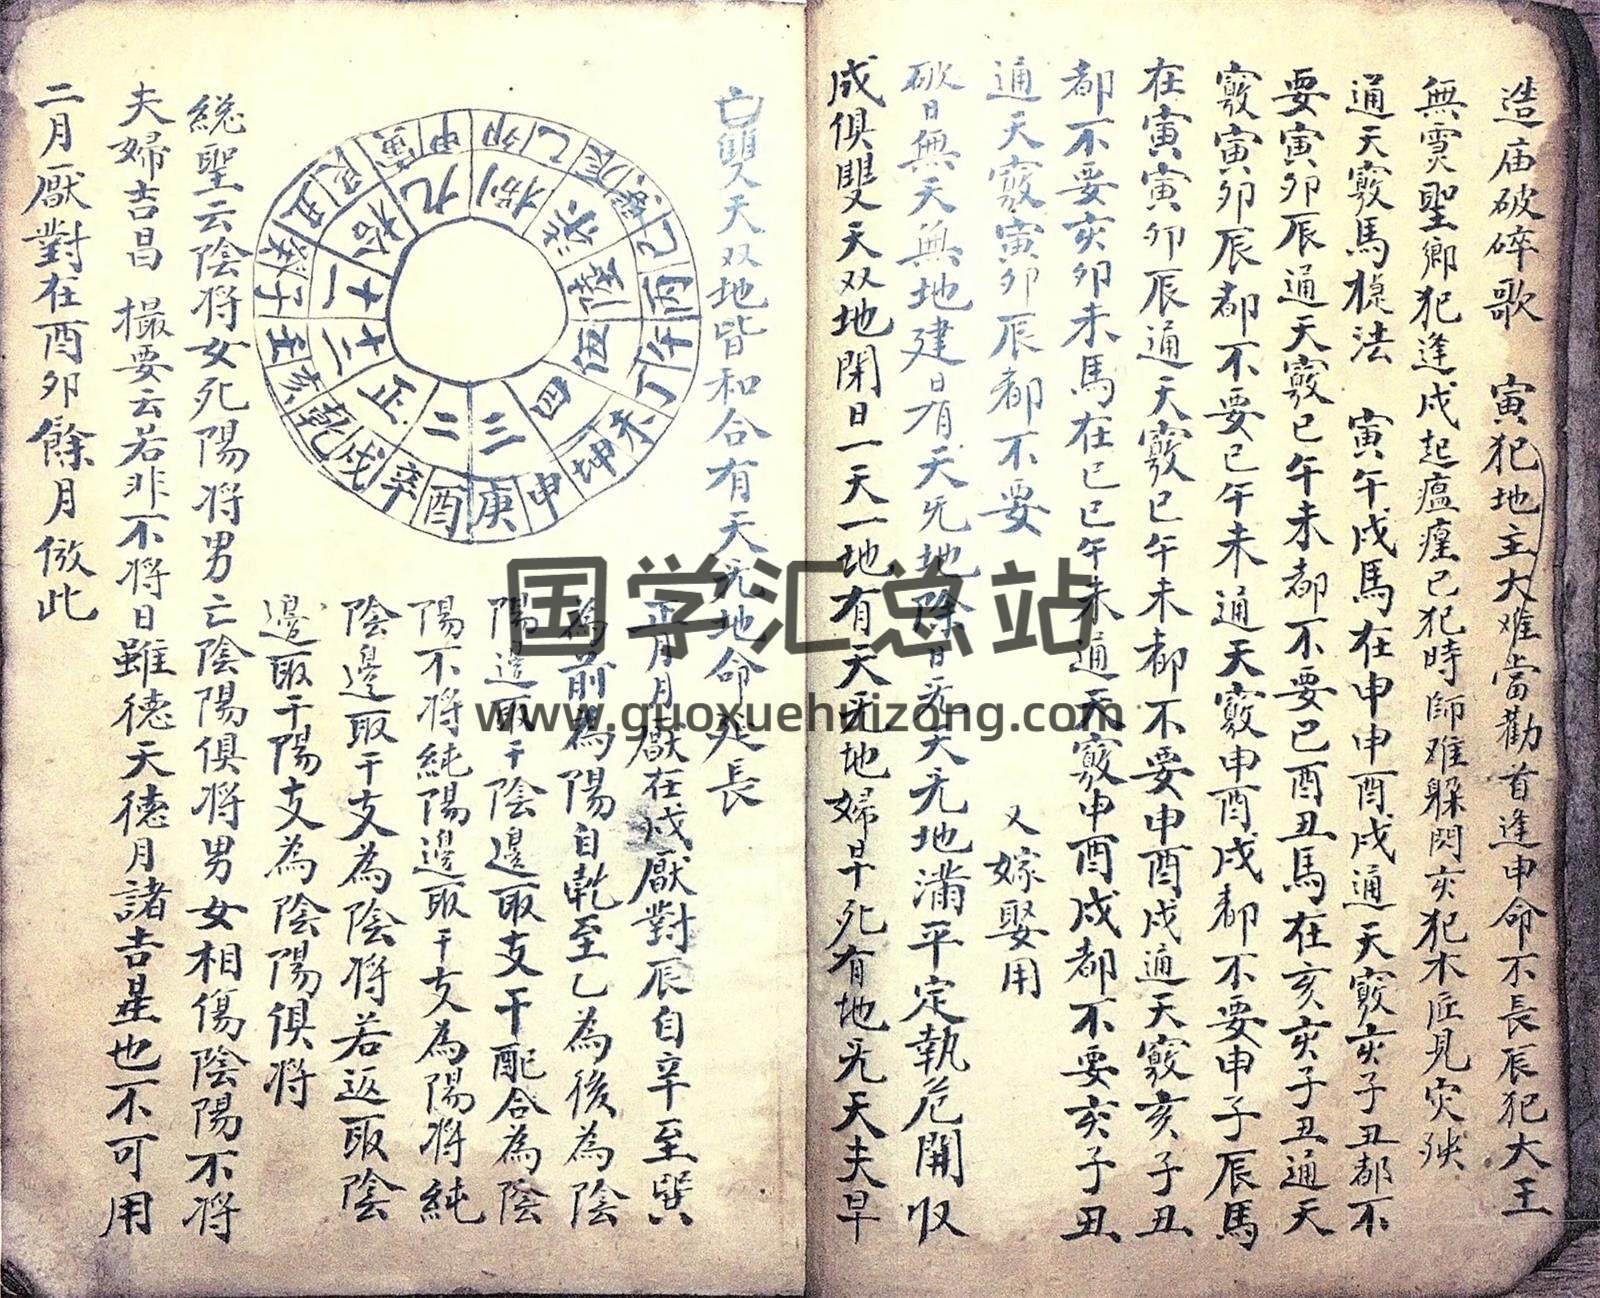 造庙破碎歌　寅犯地主大难當勸首逢申命不長辰犯大王
無雲聖鄉犯逢戌起瘟瘽已犯時師难躱閃亥犯木匠見灾殃
通天竅馬㮣法　寅午戌馬在申申酉戌通天竅亥子丑都不
要寅卯辰通天竅巳午未都不要巳酉丑馬在亥亥子丑通天
竅寅卯辰都不要巳午未通天竅申酉戌都不要申子辰馬
在寅寅卯辰通天竅巳午未都不要申酉戌通天竅亥子丑
都不要亥卯未馬在巳巳午未通天竅申酉戌都不要亥子丑
通天竅寅卯辰都不要　又嫁娶用
破日無天無地建日有天无地除日无天无地满平定執危開収
成俱雙天双地閉日一天一地有天无地婦早死有地无天夫早
亡雙天双地皆和合有天无地命延長
卯乙辰巽巳丙午丁未坤申庚酉辛戌乾亥壬子癸丑艮寅甲
捌柒陸伍四三二正十二十一拾九
正月月厭在戌厭對辰自辛至巽
為前為陽自乾至乙為後為陰
陽邉取干陰邉取支干配合為陰
陽不將純陽邉取干支為陽將純
陰邉取干支為陰將若返取陰
邉取干陽支為陰陽俱將
総聖云陰将女死陽将男亡陰陽俱将男女相傷陰陽不將
夫婦吉昌　撮要云若非不將日雖德天德月諸吉星也不可用
二月厭對在酉卯餘月倣此
国学汇总站
www.guoxuehuizong.com